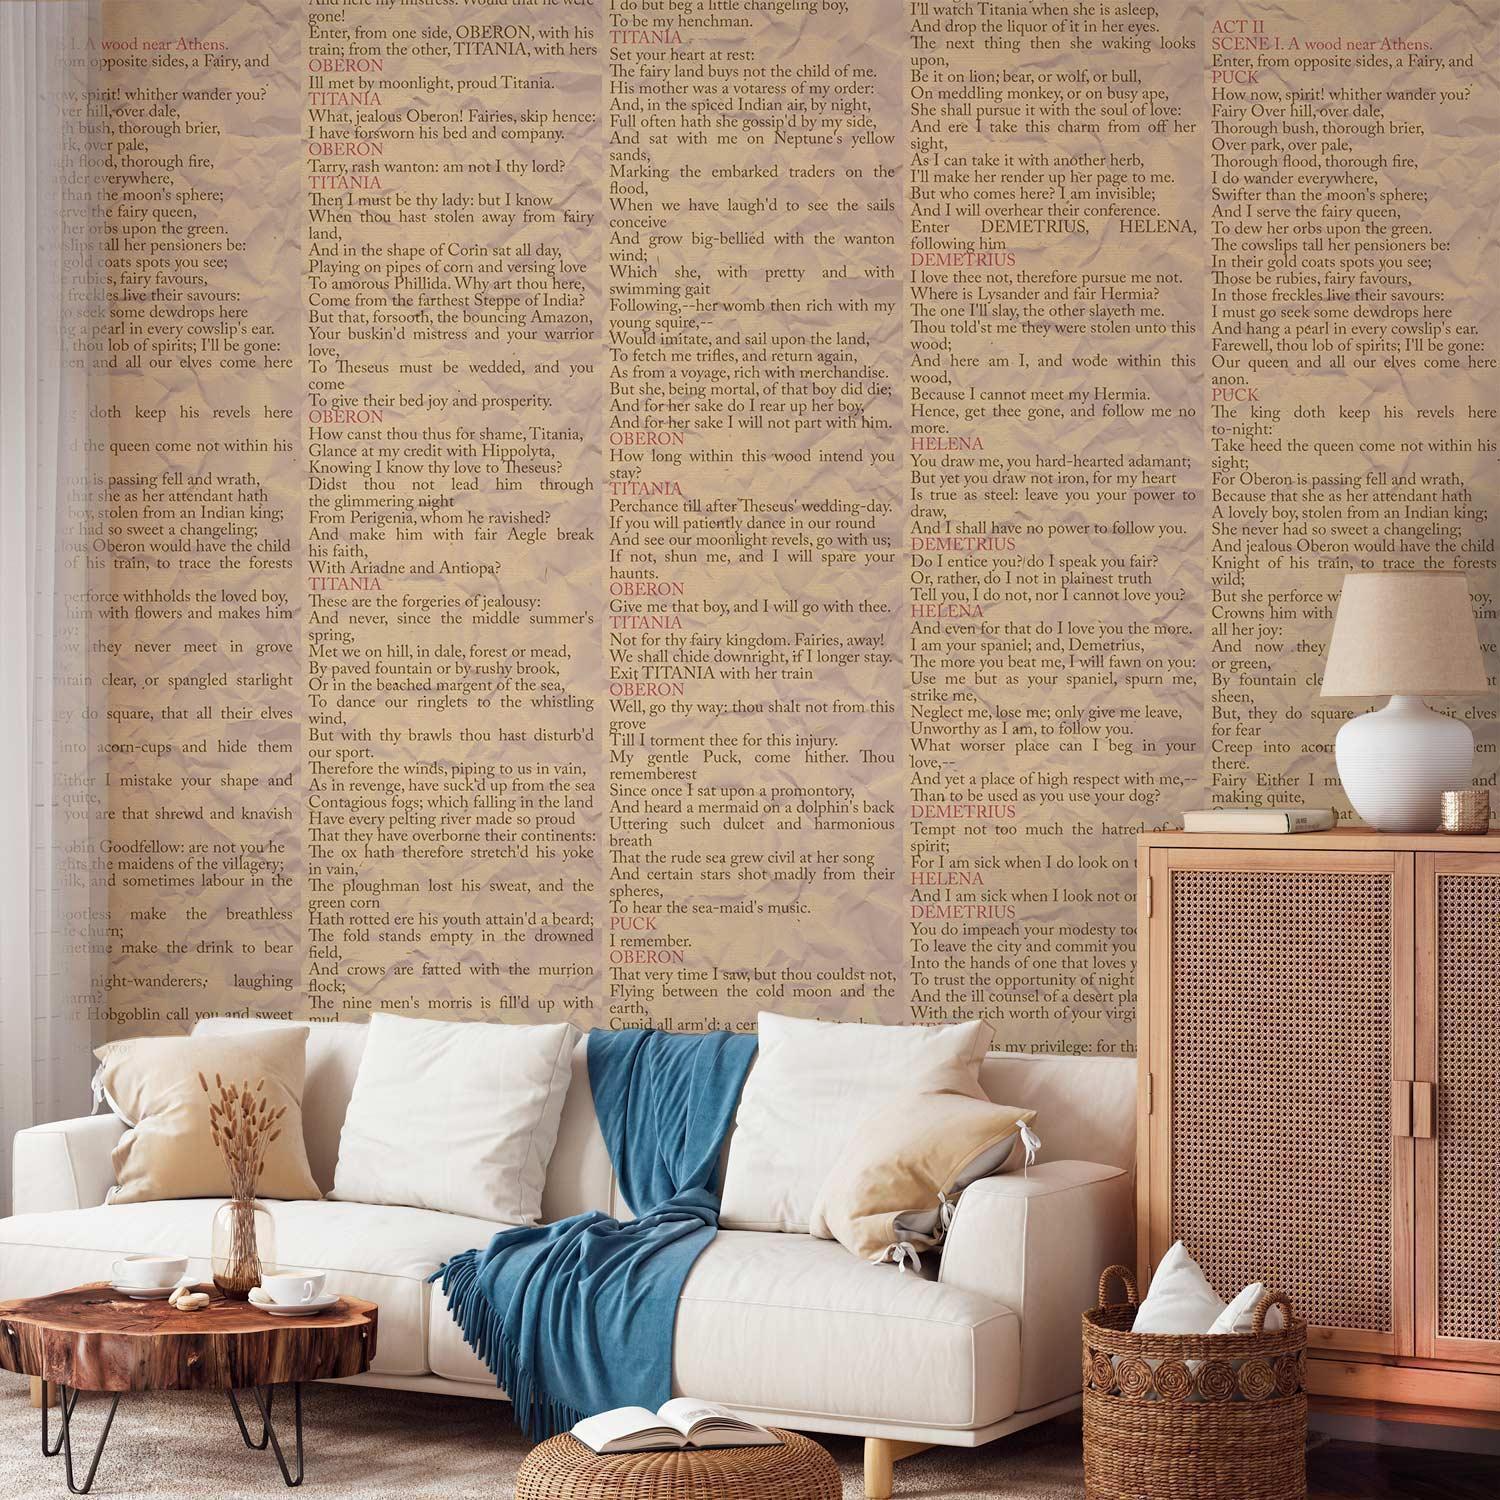 S I. A wood near Athens.
from opposite sides, a Fairy, and
spirit! whither wander you?
over hill, over dale,
bush, thorough brier,
over pale,
flood, thorough fire,
everywhere,
than the moon's sphere;
serve the fairy queen,
her orbs upon the green.
tall her pensioners be:
gold coats spots you see;
rubies, fairy favours,
freckles live their savours:
seek some dewdrops here
a pearl in every cowslip's ear.
thou lob of spirits; I'll be gone:
and all our elves come here
doth keep his revels here
the queen come not within his
is passing fell and wrath,
that she as her attendant hath
boy, stolen from an Indian king;
had so sweet a changeling;
Oberon would have the child
of his train, to trace the forests
perforce withholds the loved boy,
him with flowers and makes him
they never meet in grove
clear, or spangled starlight
do square, that all their elves
into acorn-cups and hide them
Either I mistake your shape and
quite,
you are that shrewd and knavish
Goodfellow: are not you he
the maidens of the villagery;
and sometimes labour in the
bootless make the breathless
churn;
make the drink to bear
night-wanderers, laughing
harm?
Hobgoblin call you and sweet
And here my mistress. Would that he were
gone!
Enter, from one side, OBERON, with his
train; from the other, TITANIA, with hers
OBERON
Ill met by moonlight, proud Titania.
TITANIA
What, jealous Oberon! Fairies, skip hence:
I have forsworn his bed and company.
OBERON
Tarry, rash wanton: am not I thy lord?
TITANIA
Then I must be thy lady: but I know
When thou hast stolen away from fairy
land,
And in the shape of Corin sat all day,
Playing on pipes of corn and versing love
To amorous Phillida. Why art thou here,
Come from the farthest Steppe of India?
But that, forsooth, the bouncing Amazon,
Your buskin'd mistress and your warrior
love,
To Theseus must be wedded, and you
come
To give their bed joy and prosperity.
OBERON
How canst thou thus for shame, Titania,
Glance at my credit with Hippolyta,
Knowing I know thy love to Theseus?
Didst thou not lead him through
the glimmering night
From Perigenia, whom he ravished?
And make him with fair Aegle break
his faith,
With Ariadne and Antiopa?
TITANIA
These are the forgeries of jealousy:
And never, since the middle summer's
spring,
Met we on hill, in dale, forest or mead,
By paved fountain or by rushy brook,
Or in the beached margent of the sea,
To dance our ringlets to the whistling
wind,
But with thy brawls thou hast disturb'd
our sport.
Therefore the winds, piping to us in vain,
As in revenge, have suck'd up from the sea
Contagious fogs; which falling in the land
Have every pelting river made so proud
That they have overborne their continents:
The ox hath therefore stretch'd his yoke
in vain,
The ploughman lost his sweat, and the
green corn
Hath rotted ere his youth attain'd a beard;
The fold stands empty in the drowned
field,
And crows are fatted with the murrion
flock;
The nine men's morris is fill'd up with
mud,
I do but beg a little changeling boy,
To be my henchman.
TITANIA
Set your heart at rest:
The fairy land buys not the child of me.
His mother was a votaress of my order:
And, in the spiced Indian air, by night,
Full often hath she gossip'd by my side,
And sat with me on Neptune's yellow
sands,
Marking the embarked traders on the
flood,
When we have laugh'd to see the sails
conceive
And grow big-bellied with the wanton
wind;
Which she, with pretty and with
swimming gait
Following,--her womb then rich with my
young squire,--
Would imitate, and sail upon the land,
To fetch me trifles, and return again,
As from a voyage, rich with merchandise.
But she, being mortal, of that boy did die;
And for her sake do I rear up her boy,
And for her sake I will not part with him.
OBERON
How long within this wood intend you
stay?
TITANIA
Perchance till after Theseus' wedding-day.
If you will patiently dance in our round
And see our moonlight revels, go with us;
If not, shun me, and I will spare your
haunts.
OBERON
Give me that boy, and I will go with thee.
TITANIA
Not for thy fairy kingdom. Fairies, away!
We shall chide downright, if I longer stay.
Exit TITANIA with her train
OBERON
Well, go thy way: thou shalt not from this
grove
Till I torment thee for this injury.
My gentle Puck, come hither. Thou
rememberest
Since once I sat upon a promontory,
And heard a mermaid on a dolphin's back
Uttering such dulcet and harmonious
breath
That the rude sea grew civil at her song
And certain stars shot madly from their
spheres,
To hear the sea-maid's music.
PUCK
I remember.
OBERON
That very time I saw, but thou couldst not,
Flying between the cold moon and the
earth,
Cupid all arm'd: a
I'll watch Titania when she is asleep,
And drop the liquor of it in her eyes.
The next thing then she waking looks
upon,
Be it on lion; bear, or wolf, or bull,
On meddling monkey, or on busy ape,
She shall pursue it with the soul of love:
And ere I take this charm from off her
sight,
As I can take it with another herb,
I'll make her render up her page to me.
But who comes here? I am invisible;
And I will overhear their conference.
Enter DEMETRIUS, HELENA,
following him
DEMETRIUS
I love thee not, therefore pursue me not.
Where is Lysander and fair Hermia?
The one I'll slay, the other slayeth me.
Thou told'st me they were stolen unto this
wood;
And here am I, and wode within this
wood,
Because I cannot meet my Hermia.
Hence, get thee gone, and follow me no
more.
HELENA
You draw me, you hard-hearted adamant;
But yet you draw not iron, for my heart
Is true as steel: leave you your power to
draw,
And I shall have no power to follow you.
DEMETRIUS
Do I entice you? do I speak you fair?
Or, rather, do I not in plainest truth
Tell you, I do not, nor I cannot love you?
HELENA
And even for that do I love you the more.
I am your spaniel; and, Demetrius,
The more you beat me, I will fawn on you:
Use me but as your spaniel, spurn me,
strike me,
Neglect me, lose me; only give me leave,
Unworthy as I am, to follow you.
What worser place can I beg in your
love,--
And yet a place of high respect with me,--
Than to be used as you use your dog?
DEMETRIUS
Tempt not too much the hatred of
spirit;
For I am sick when I do look on
HELENA
And I am sick when I look not on
DEMETRIUS
You do impeach your modesty too
To leave the city and commit you
Into the hands of one that loves
To trust the opportunity of night
And the ill counsel of a desert
With the rich worth of your
is my privilege: for
ACT II
SCENE I. A wood near Athens.
Enter, from opposite sides, a Fairy, and
PUCK
How now, spirit! whither wander you?
Fairy Over hill, over dale,
Thorough bush, thorough brier,
Over park, over pale,
Thorough flood, thorough fire,
I do wander everywhere,
Swifter than the moon's sphere;
And I serve the fairy queen,
To dew her orbs upon the green.
The cowslips tall her pensioners be:
In their gold coats spots you see;
Those be rubies, fairy favours,
In those freckles live their savours:
I must go seek some dewdrops here
And hang a pearl in every cowslip's ear.
Farewell, thou lob of spirits; I'll be gone:
Our queen and all our elves come here
anon.
PUCK
The king doth keep his revels here
to-night:
Take heed the queen come not within his
sight;
For Oberon is passing fell and wrath,
Because that she as her attendant hath
A lovely boy, stolen from an Indian king;
She never had so sweet a changeling;
And jealous Oberon would have the child
Knight of his train, to trace the forests
wild;
But she perforce boy,
Crowns him with him
all her joy:
And now they
or green,
By fountain
sheen,
But, they do square, their elves
for fear
Creep into them
there.
Fairy Either I and
making quite,